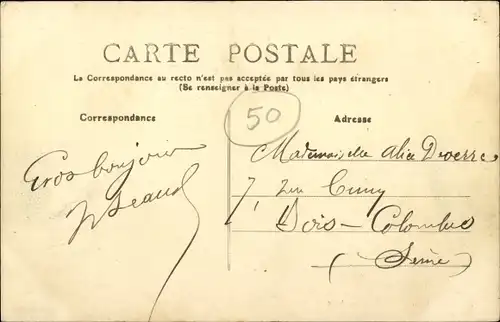 CARTE POSTALE
La Correspondance au recto n'est pas acceptée par tous les pays étrangers
(Se renseigner à la Poste)
50
Correspondance
Adresse
Gros bonjour
Mademoiselle Alice Deverre
7,
Bois-Colombes
(Seine)